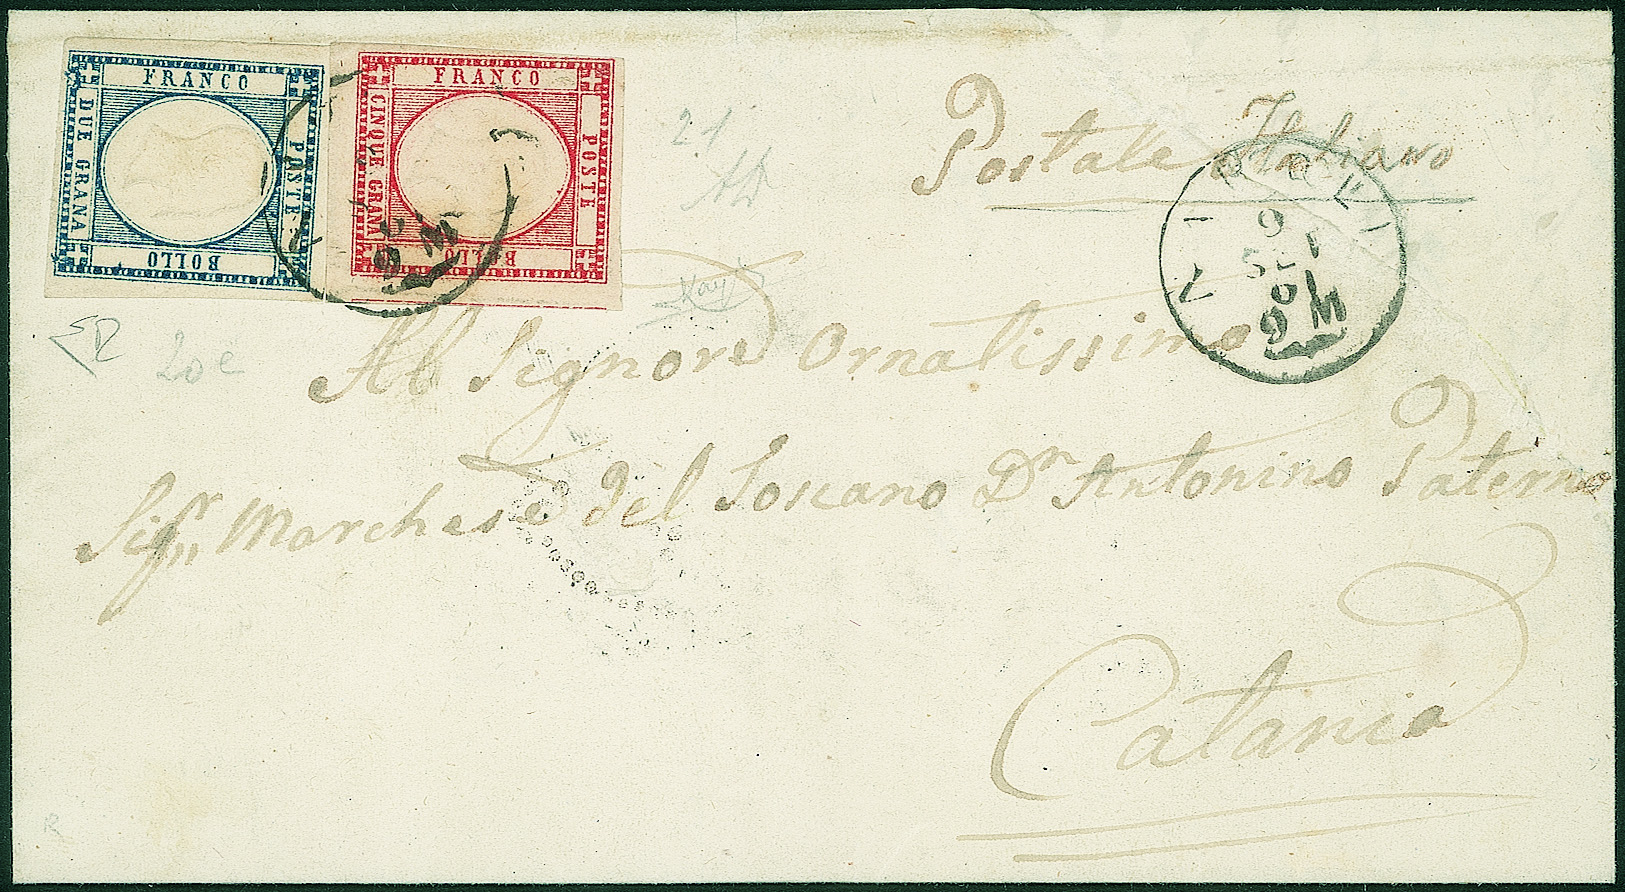 FRANCO
DUE GRANA
POSTE
BOLLO
FRANCO
CINQUE GRANA
POSTE
BOLLO
Postale Italiano
NAPOLI
9
SET
9 M
21
20c
Al Signore Ornatissimo
Sigr Marchese del Toscano Dn Antonino Paternò
Catania